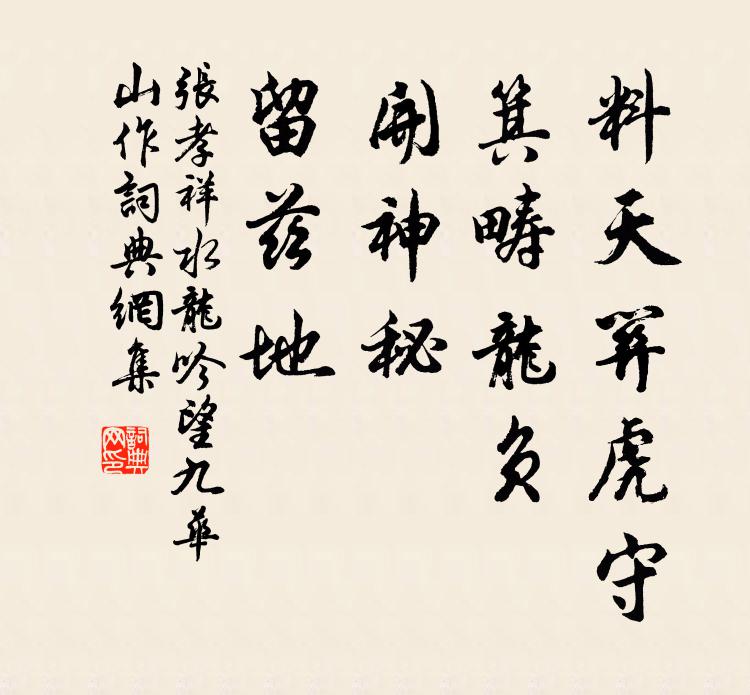 料天関虎守
箕疇龍負
開神秘
留茲地
張孝祥水龍吟望九華
山作詞典網集
詞典
网印